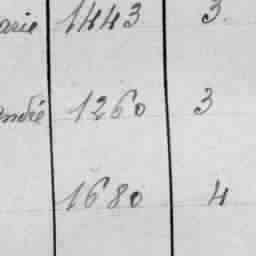 arie 1443 3.
André 1260 3
1680 4